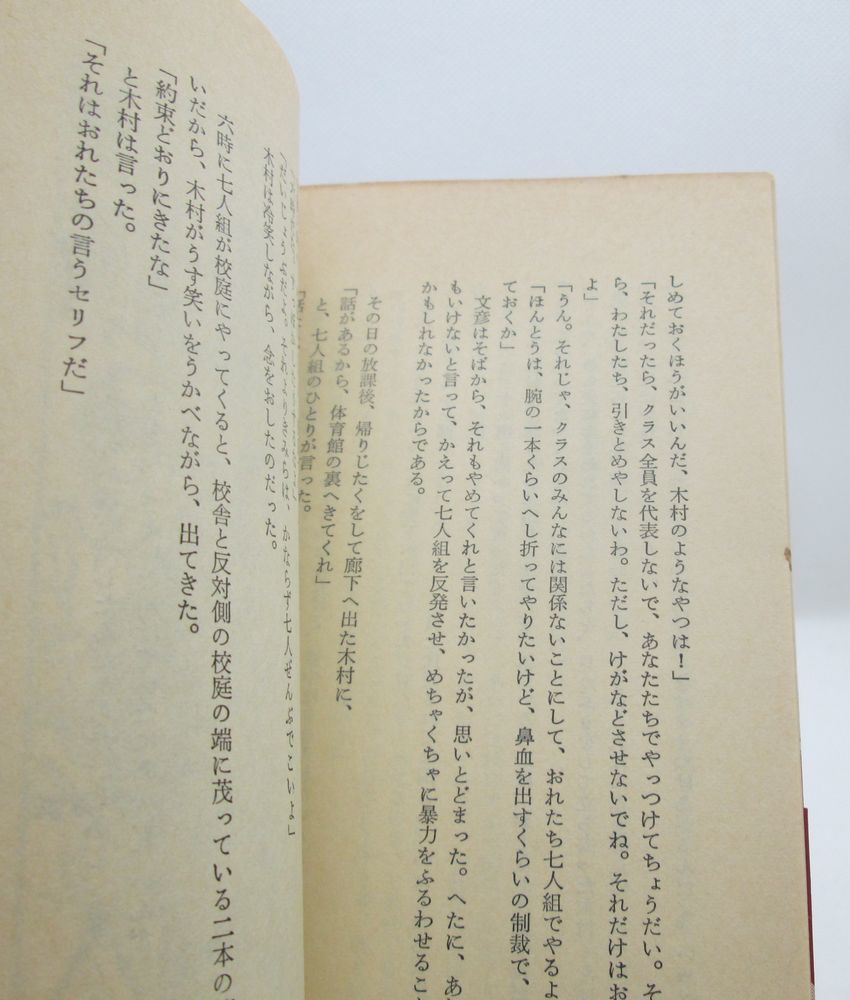 しめておくほうがいいんだ、木村のようなやつは！」
「それだったら、クラス全員を代表しないで、あなたたちでやっつけてちょうだい。そ
ら、わたしたち、引きとめやしないわ。ただし、けがなどさせないでね。それだけはお
よ」
「うん。それじゃ、クラスのみんなには関係ないことにして、おれたち七人組でやるよ
「ほんとうは、腕の一本くらいへし折ってやりたいけど、鼻血を出すくらいの制裁で、
ておくか」
文彦はそばから、それもやめてくれと言いたかったが、思いとどまった。へたに、あ
もいけないと言って、かえって七人組を反発させ、めちゃくちゃに暴力をふるわせること
かもしれなかったからである。
その日の放課後、帰りじたくをして廊下へ出た木村に、
「話があるから、体育館の裏へきてくれ」
と、七人組のひとりが言った。
「だいじょうぶだよ。それよりきみらは、かならず七人ぜんぶでこいよ」
木村は冷笑しながら、念をおしたのだった。
六時に七人組が校庭にやってくると、校舎と反対側の校庭の端に茂っている二本の
いだから、木村がうす笑いをうかべながら、出てきた。
「約束どおりにきたな」
と木村は言った。
「それはおれたちの言うセリフだ」